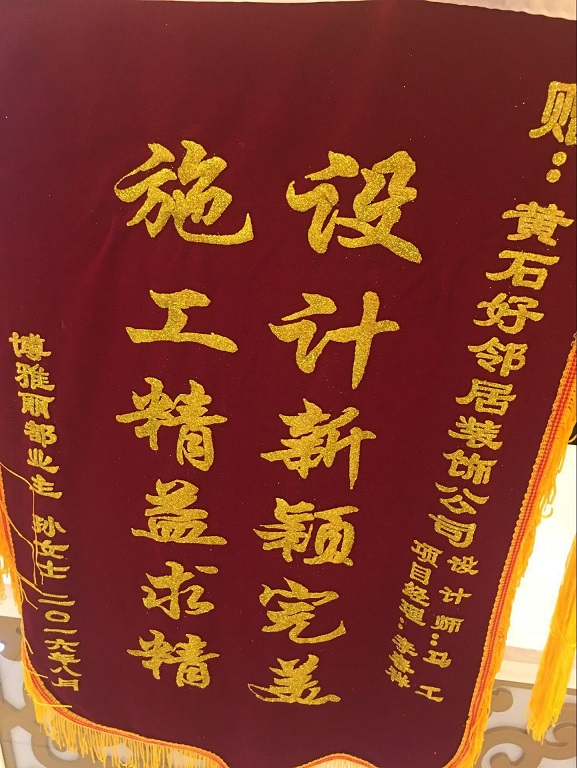 赠：黄石好邻居装饰公司
设计师：马工
项目经理：李
设计新颖完美
施工精益求精
博雅丽都业主 孙女士 二〇一六年八月